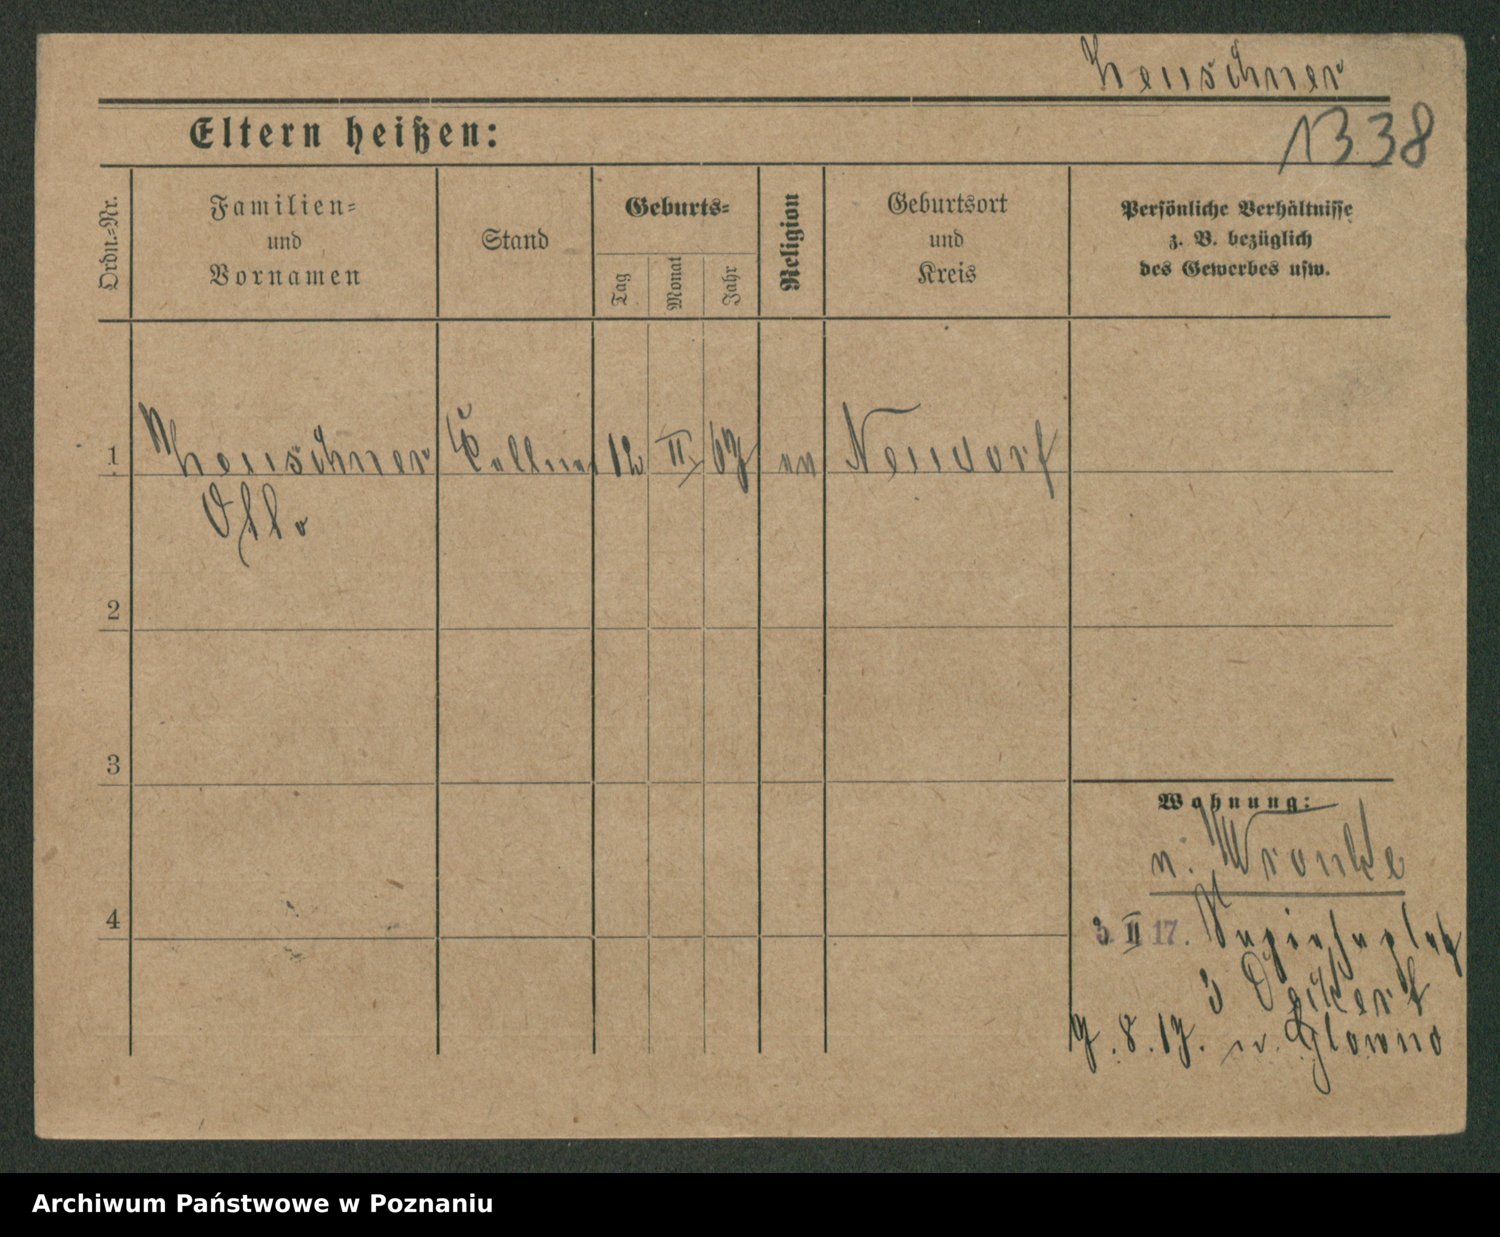 Heuschner
1338
Eltern heißen:
Ordn.=Nr.
Familien=
und
Vornamen
Stand
Geburts=
Tag
Monat
Jahr
Religion
Geburtsort
und
Kreis
Persönliche Verhältnisse
z. B. bezüglich
des Gewerbes usw.
1 Heuschner Kellner 12 II 67 ev Neudorf
Otto
2
3
4
Wohnung:
n. Wronke
3 II 17. Sapiehaplatz
3 Deikert
7.8.17. n. Glowno
Archiwum Państwowe w Poznaniu